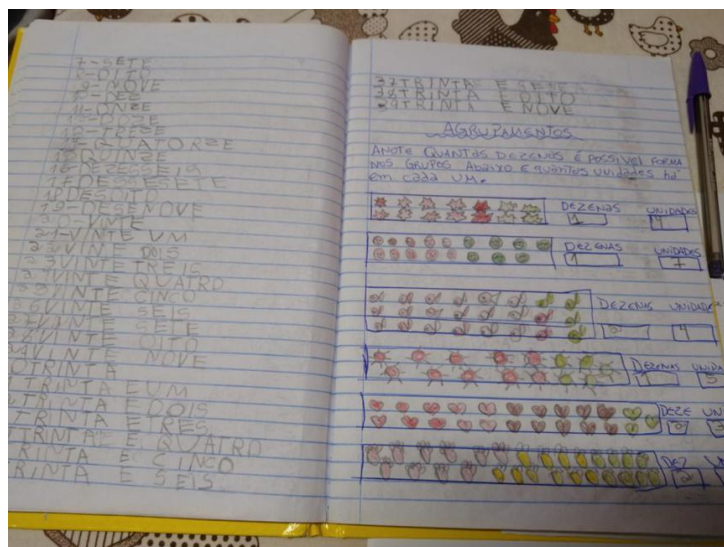 7-SETE
8-OITO
9-NOVE
10-DEZ
11-ONZE
12-DOZE
13-TREZE
QUATORZE
QUINZE
DESESSEIS
DESESSETE
DESOITO
19-DESENOVE
20-VINTE
21-VINTE UM
22 VINTE DOIS
23 VINTE TREIS
24 VINTE QUATRO
VINTE CINCO
26 VINTE SEIS
27 VINTE SETE
28 VINTE OITO
VINTE NOVE
TRINTA
TRINTA E UM
TRINTA E DOIS
TRINTA E TRES
TRINTA E QUATRO
TRINTA E CINCO
TRINTA E SEIS
37 TRINTA E SETE
38 TRINTA E OITO
TRINTA E NOVE
AGRUPAMENTOS
ANOTE QUANTAS DEZENAS É POSSIVEL FORMA
NOS GRUPOS ABAIXO E QUANTOS UNIDADES HA
em cada UM.
DEZENAS UNIDADES
1
DEZENAS UNIDADES
1 7
DEZENAS UNIDADE
2 4
DEZENAS UNIDA
1 5
DEZE UN
2 3
DEZ
2